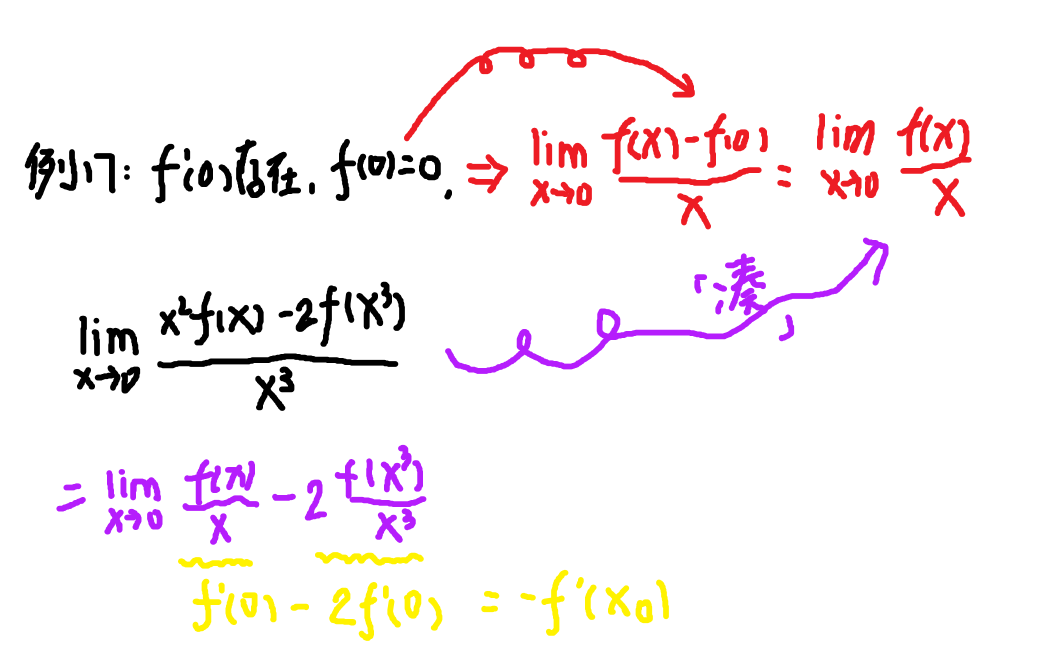 例17: f'(0)存在, f(0)=0, ⇒ lim x→0 (f(x)-f(0))/x = lim x→0 f(x)/x
「凑」
lim x→0 (x²f(x)-2f(x³))/x³
= lim x→0 f(x)/x - 2 f(x³)/x³
f'(0) - 2f'(0) = -f'(x₀)